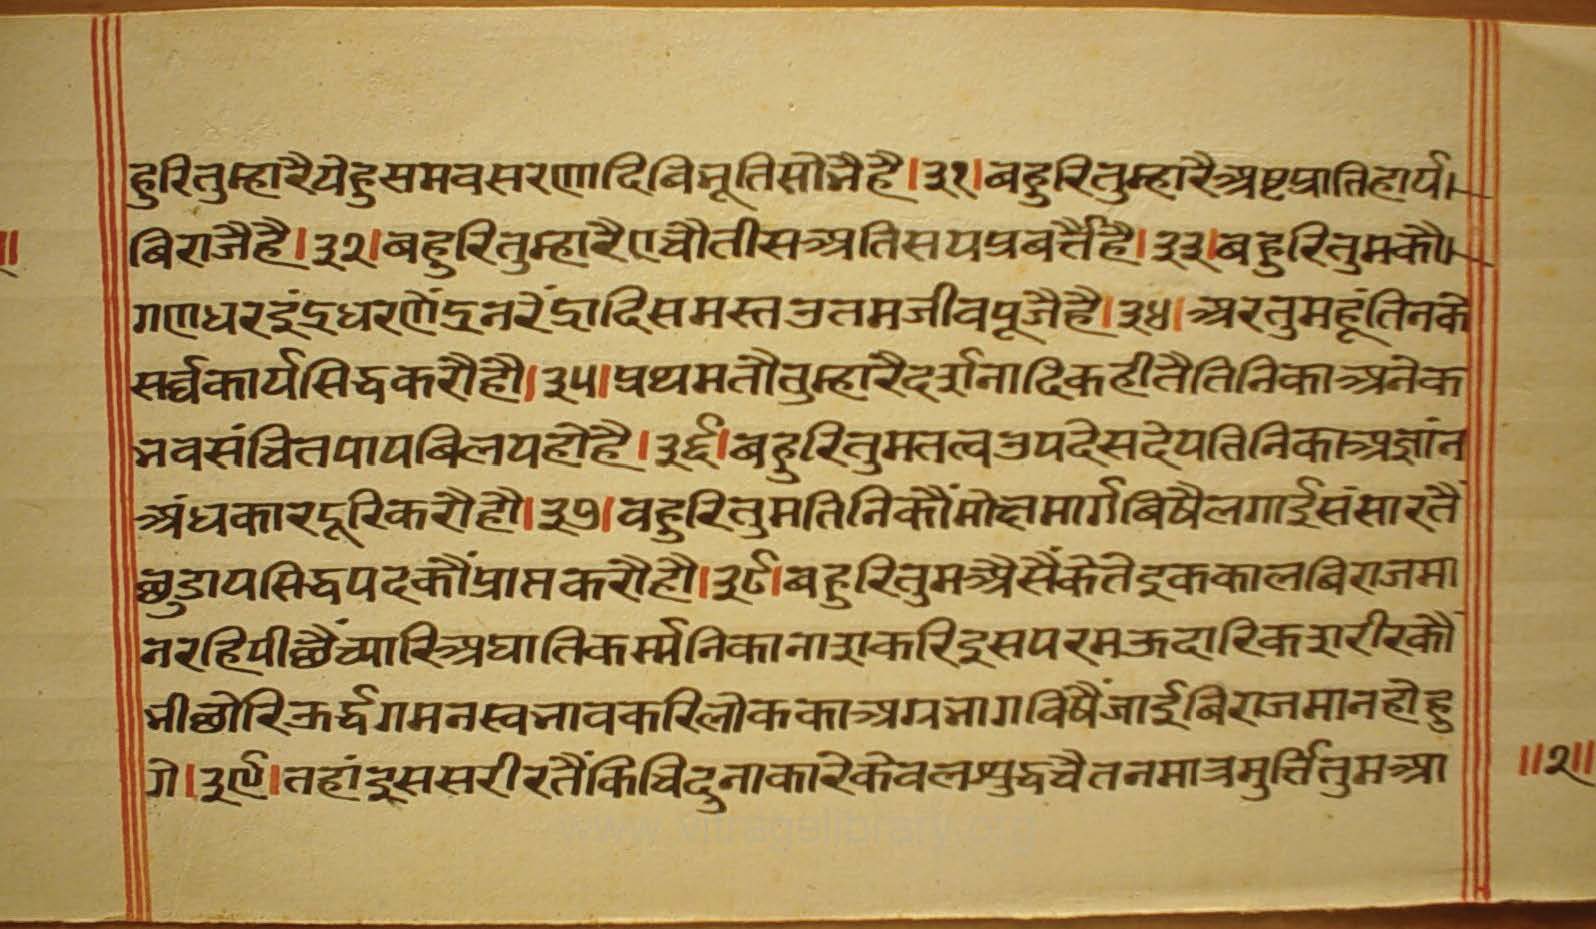 हुरितुम्हारैयेहुसमवसरणादिबिभूतिसोभैहै।३१।बहुरितुम्हारैअष्टप्रातिहार्य।
बिराजैहै।३२।बहुरितुम्हारैएचौतीसअतिसयप्रबर्त्तैहै।३३।बहुरितुमकौ।
गणधरइंद्रधरणेंद्रनरेंद्रादिसमस्तउतमजीवपूजैहै।३४।अरतुमहूंतिनके
सर्व्वकार्यसिद्धकरौहौ।३५।प्रथमतौतुम्हारैदर्शनादिकहीतैतिनिकाअनेक
भवसंचितपापबिलयहोहै।३६।बहुरितुमतत्वउपदेसदेयतिनिकाअज्ञांन
अंधकारदूरिकरौहौ।३७।बहुरितुमतिनिकौंमोक्षमार्गबिषैलगाईसंसारतैं
छुडायसिद्धपदकौंप्राप्तकरौहौ।३८।बहुरितुमअैसैंकेतेइककालबिराजमा
नरहिपीछैंच्यारिअघातिकर्म्मनिकानाशकरिइसपरमऊदारिकशरीरकौं
भीछोरिऊर्द्धगमनस्वभावकरिलोककाअग्रभागविषैंजाईबिराजमानहोहु
गे।३९।तहांइससरीरतैंकिंचिदुनाकारेकेवलशुद्धचैतनमात्रमुर्त्तितुमआ
॥२॥
www.vitragelibrary.org